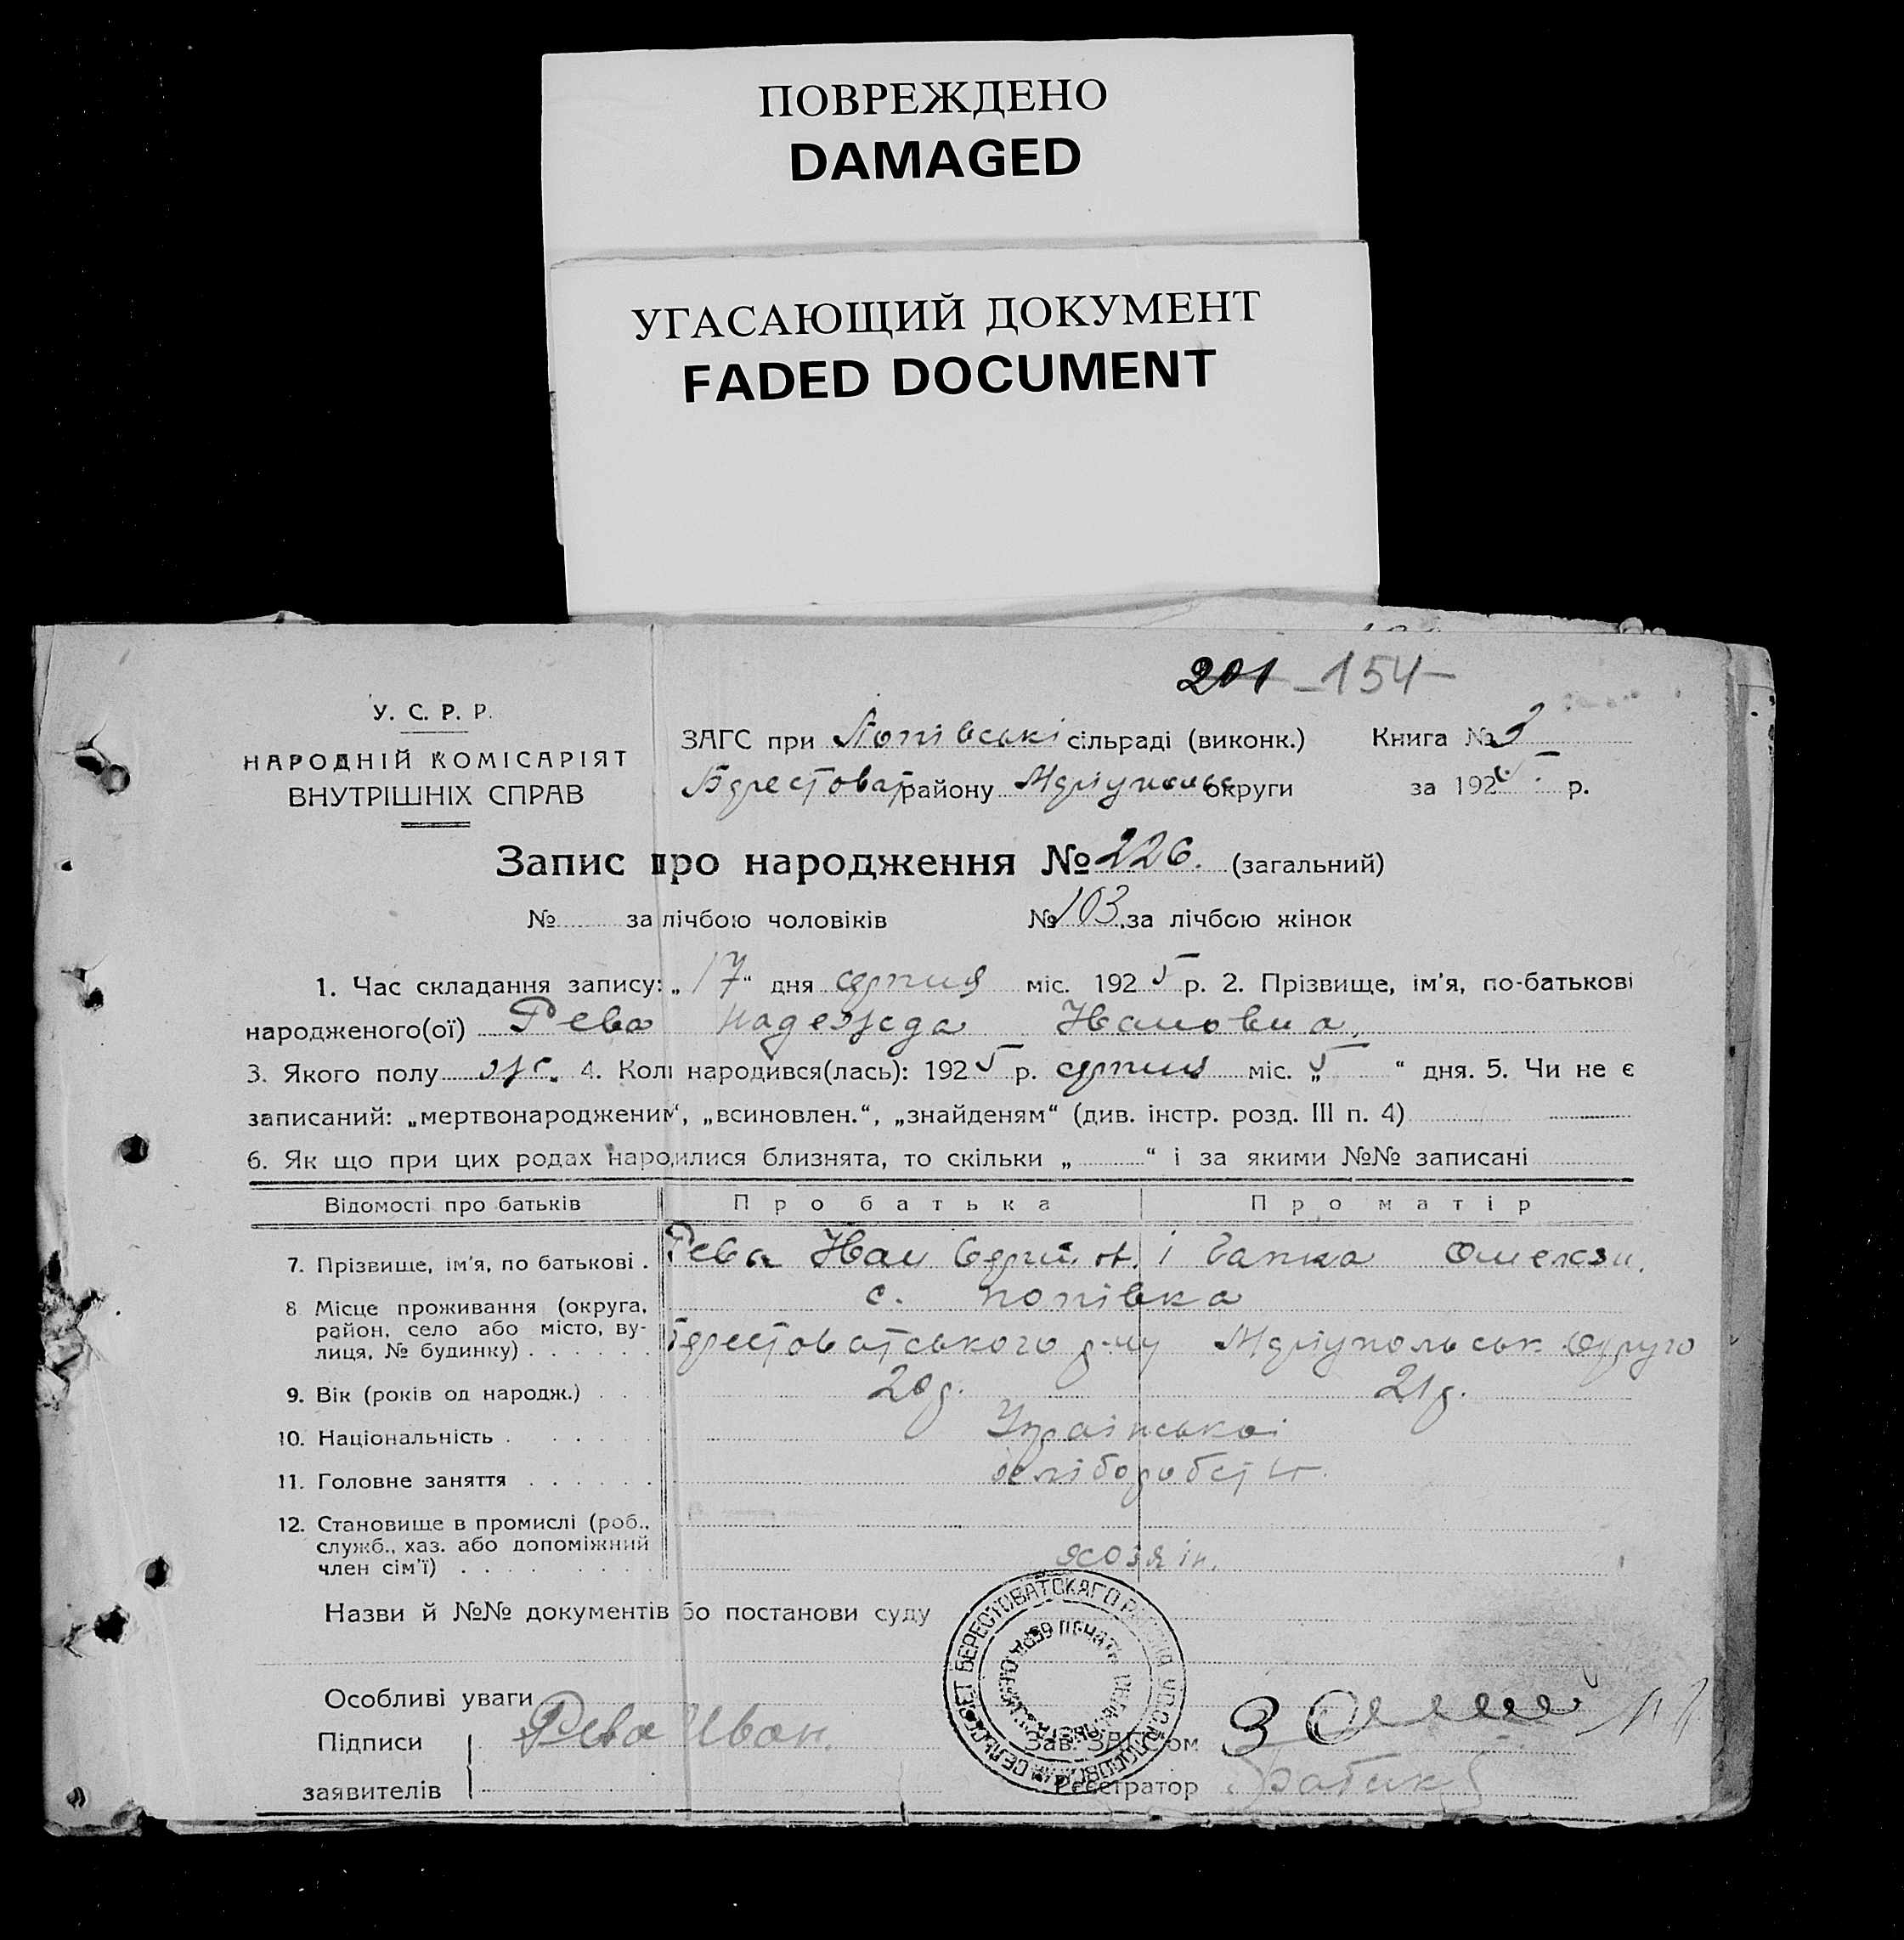 ПОВРЕЖДЕНО
DAMAGED
УГАСАЮЩИЙ ДОКУМЕНТ
FADED DOCUMENT
201 - 154 -
У. С. Р. Р.
НАРОДНІЙ КОМІСАРІЯТ
ВНУТРІШНІХ СПРАВ
ЗАГС при Попівські сільраді (виконк.) Книга № 3
Берестоват району Маріупольс округи за 1925 р.
Запис про народження № 226. (загальний)
№ за лічбою чоловіків № 103. за лічбою жінок
1. Час складання запису: „17“ дня серпня міс. 1925 р. 2. Прізвище, ім’я, по-батькові
народженого(ої) Рева Надежда Ивановна
3. Якого полу ж. 4. Колі народився(лась): 1925 р. серпня міс. „5“ дня. 5. Чи не є
записаний: „мертвонародженим“, „всиновлен.“, „знайденям“ (див. інстр. розд. III п. 4)
6. Як що при цих родах народилися близнята, то скільки „ “ і за якими №№ записані
Відомості про батьків Про батька Про матір
7. Прізвище, ім’я, по батькові . Рева Иван і
8 Місце проживання (округа, район, село або місто, вулиця, № будинку) . . . . . . с. Попівка
Берестоватського р-ну Маріупольськ округо
9. Вік (років од народж.) . . . 20 р. 21 р.
10. Національність . . . . . . Українські
11. Головне заняття . . . . . . хліборобст
12. Становище в промислі (роб.,
служб., хаз. або допоміжний
член сім’ї) . . . . . . . . хозяін.
Назви й №№ документів бо постанови суду
Особливі уваги
Підписи Рева Иван.
заявителів
Зав. ЗАГСом
Реєстратор
БЕРЕСТОВАТСКАГО РАЙОНА